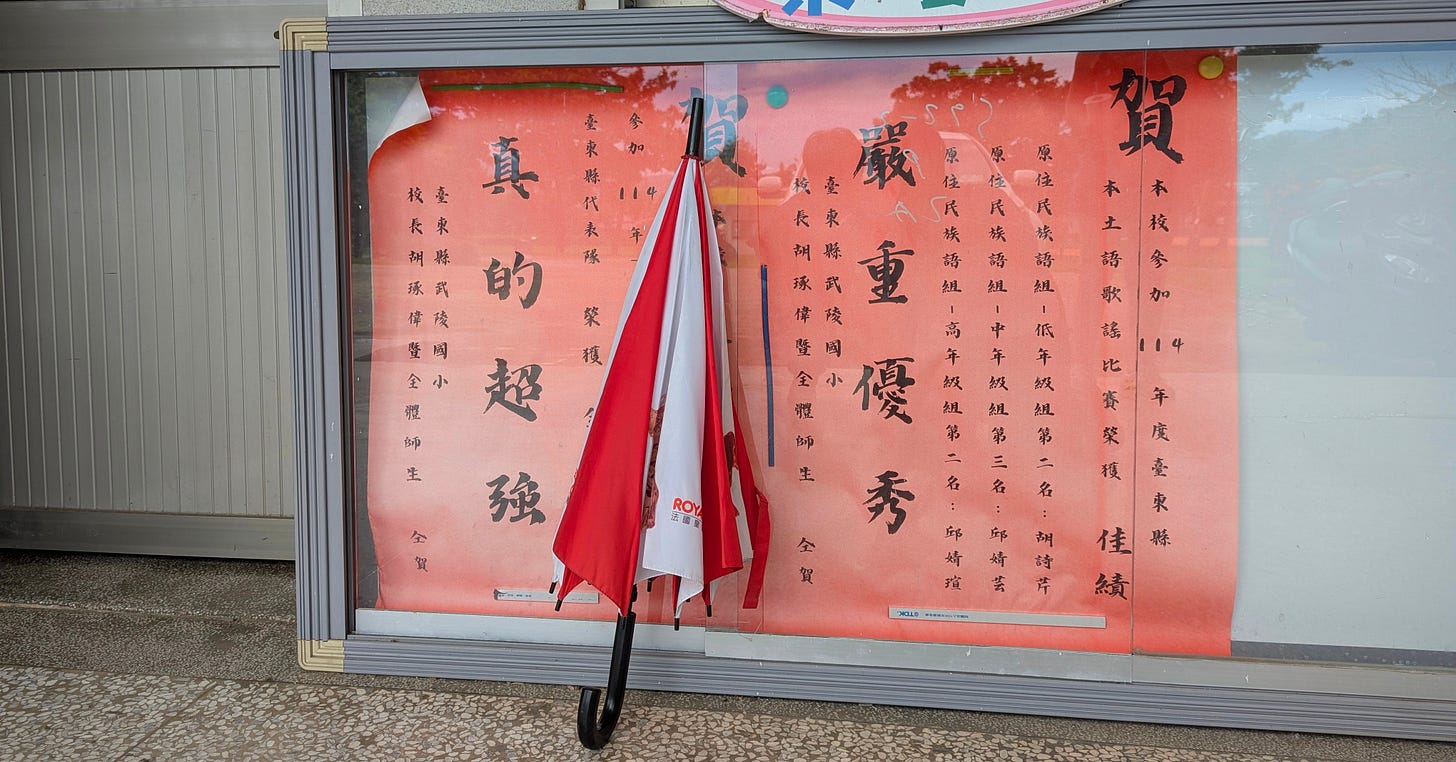 賀
本校參加114年度臺東縣
本土語歌謠比賽榮獲 佳績
原住民族語組-低年級組第二名:胡詩芹
原住民族語組-中年級組第三名:邱婧芸
原住民族語組-高年級組第二名:邱婧瑄
嚴重優秀
臺東縣武陵國小
校長胡琢偉暨全體師生 仝賀
賀
本
參加114年
臺東縣代表隊 榮獲
真的超強
臺東縣武陵國小
校長胡琢偉暨全體師生 仝賀
ROYA
法國